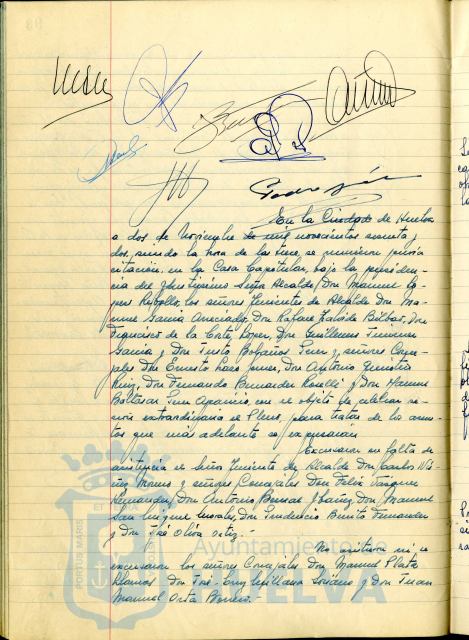 En la Ciudad de Huelva
a dos de Noviembre de mil novecientos sesenta y
dos, siendo la hora de las trece, se reunieron previa
citación, en la Casa Capitular, bajo la presiden-
cia del Ilustrísimo Señor Alcalde, Don Manuel Ló-
pez Rebollo, los señores Tenientes de Alcalde Don Ma-
nuel García Don Rafael Bilbao, Don
Francisco de la Corte López, Don Guillermo Jiménez
García y Don Justo Bolaños Pérez y señores Conce-
jales Don Ernesto Don Antonio
Ruiz, Don Fernando Bermúdez y Don Manuel
Baltasar Pérez Aparicio, con el objeto de celebrar se-
sión extraordinaria el Pleno, para tratar de los asun-
tos que más adelante se expresarán
Excusaron su falta de
asistencia el Señor Teniente de Alcalde Don Carlos Nú-
ñez Moreno y señores Concejales Don Felix
Hernández, Don Antonio Bernal Ibáñez, Don Manuel
San Miguel Morales, Don Prudencio Benito Fernández
y Don José Oliva Ortiz.-
No asistieron ni se
excusaron los señores Concejales Don Manuel Plata
Llanos Don José y Don Juan
Manuel Orta
Ayuntamiento de
HUELVA
PORTUS MARIS